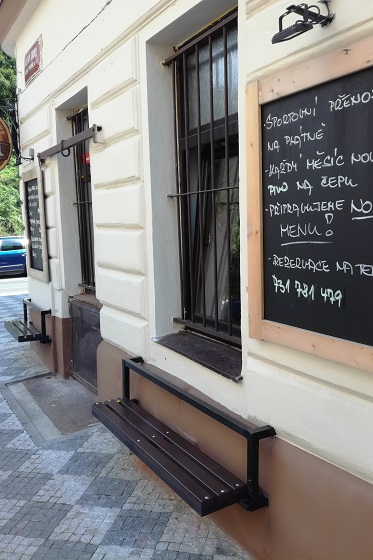 SPORTOVNÍ PŘENOS
NA PLÁTNĚ
- KAŽDÝ MĚSÍC NOV
PIVO NA ČEPU
- PŘIPRAVUJEME NO
MENU!
- REZERVACE NA TE
731 781 479